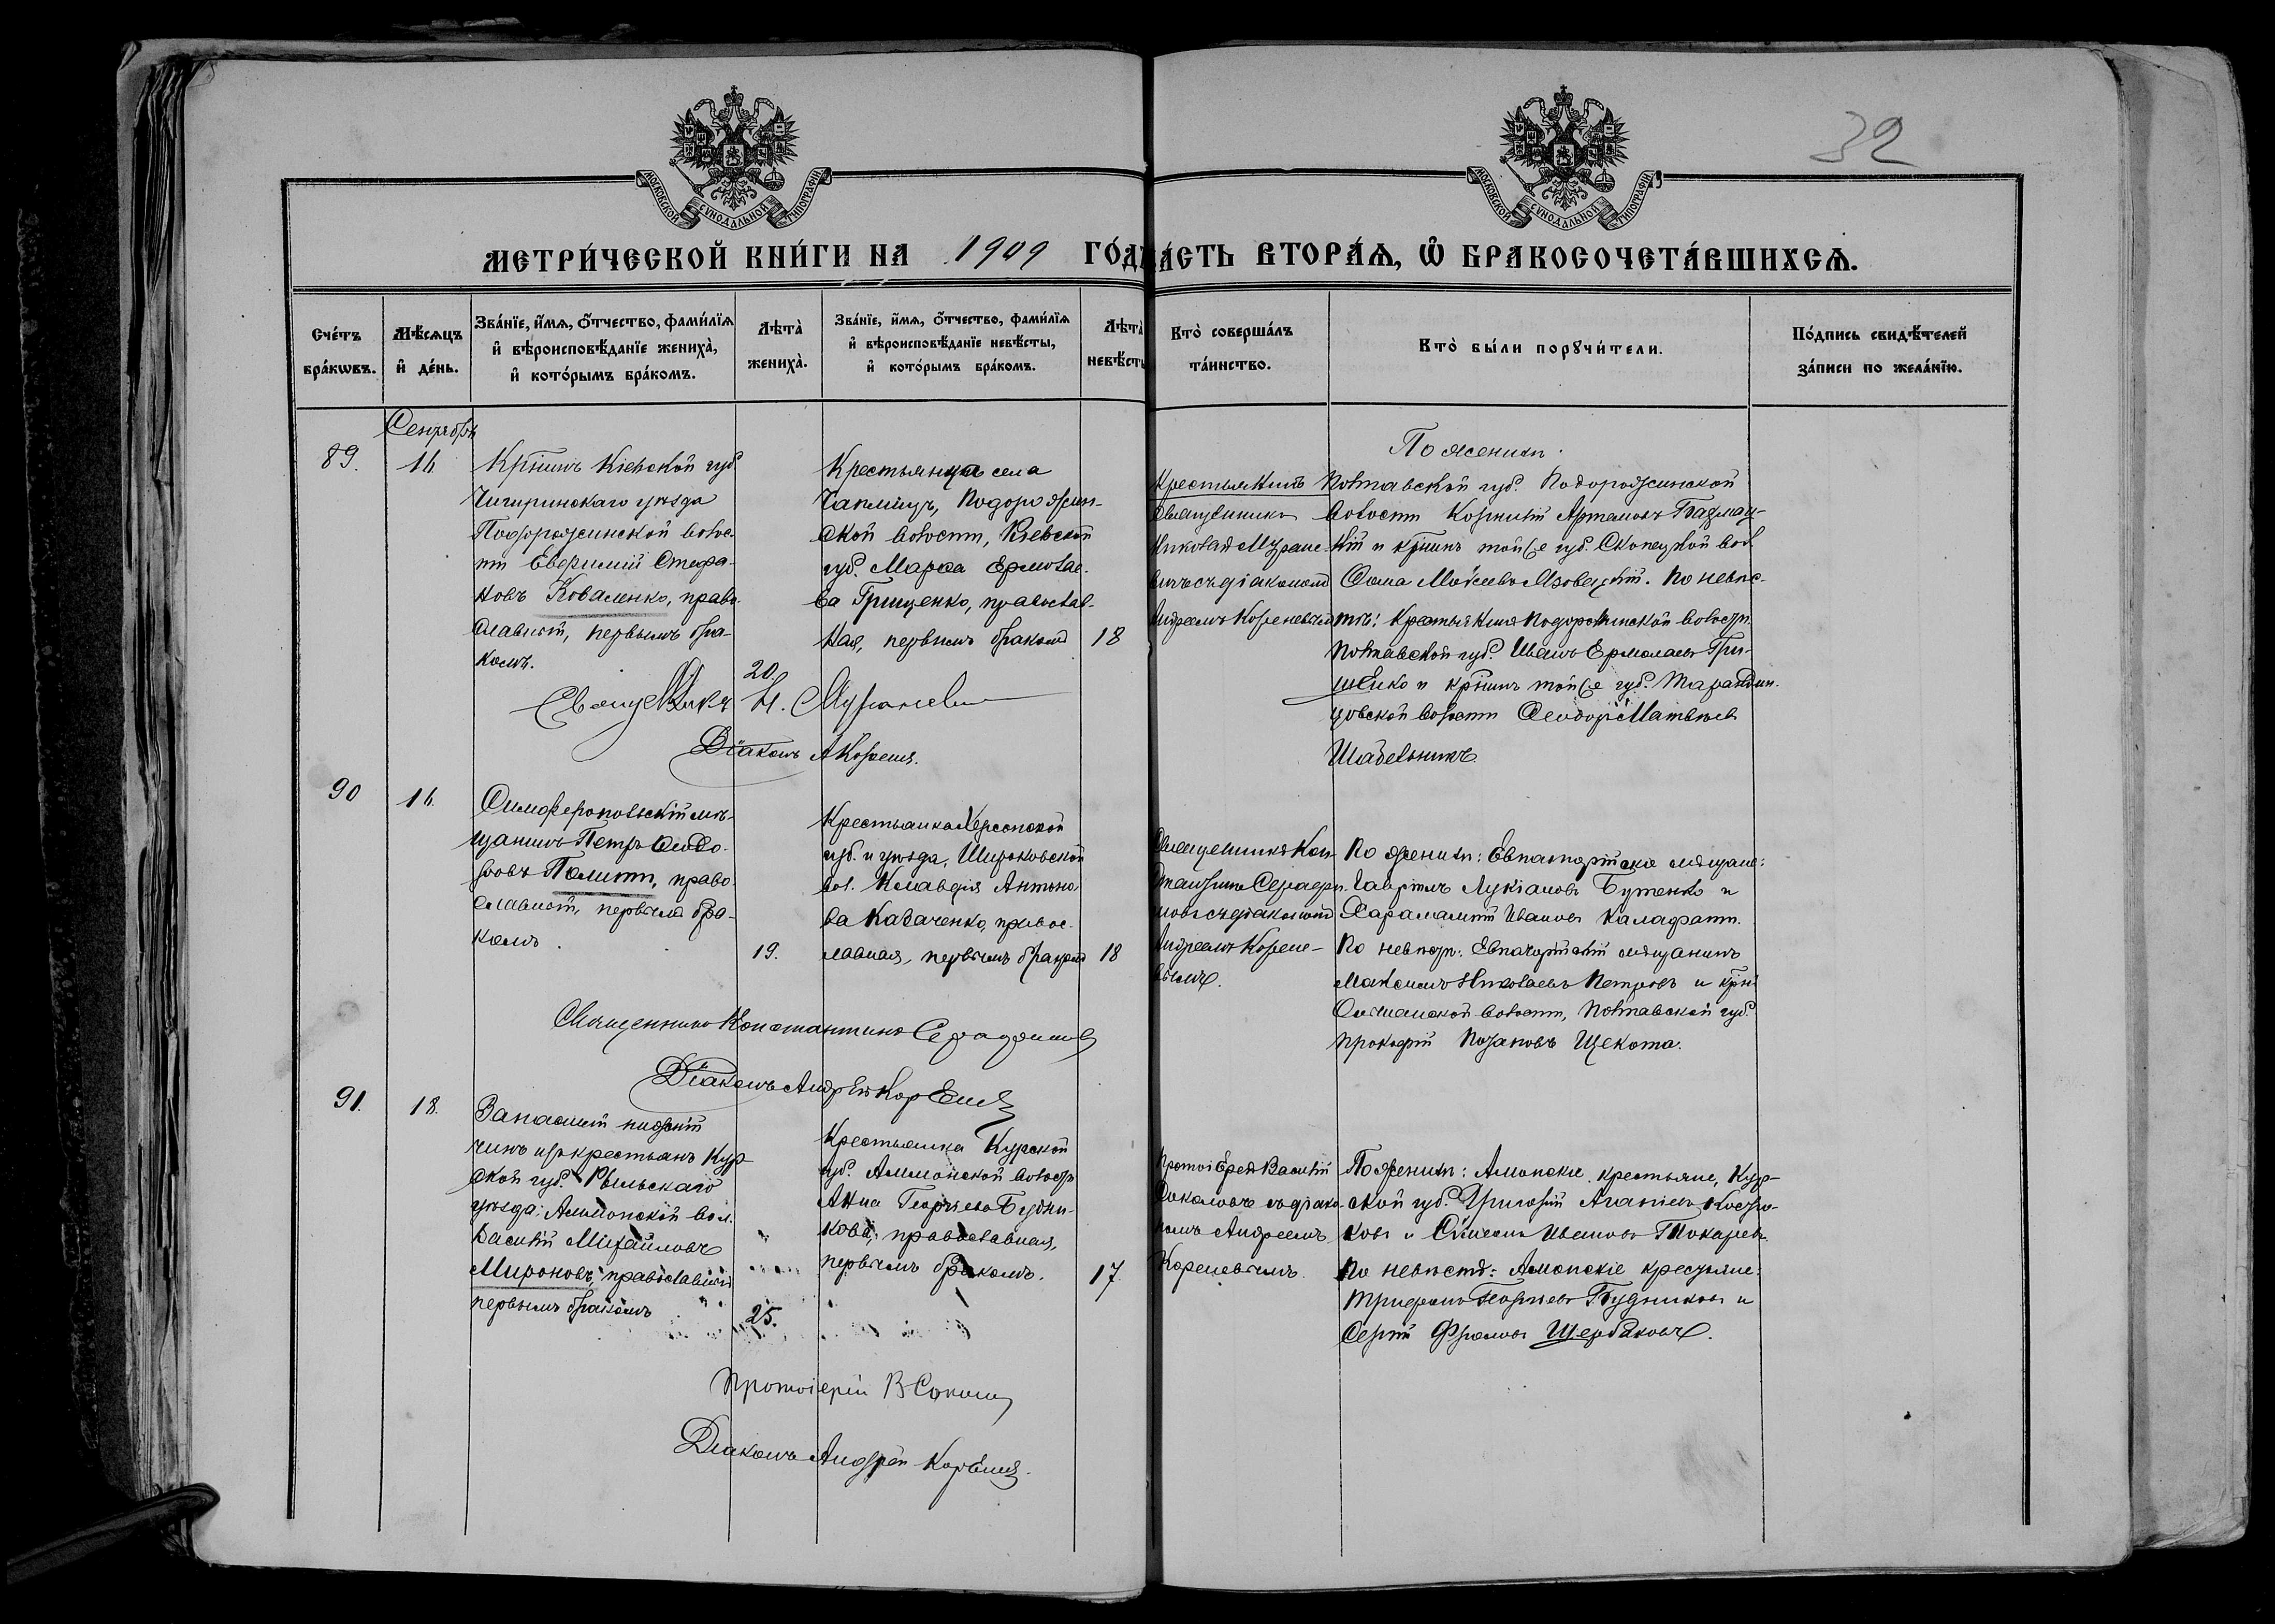 32
МОСКОВСКОЙ СѴНОДАЛЬНОЙ ТИПОГРАФІИ
МОСКОВСКОЙ СѴНОДАЛЬНОЙ ТИПОГРАФІИ
МЕТРИ́ЧЕСКОЙ КНИ́ГИ НА 1909 ГО́Д
ЧА́СТЬ ВТОРА́Ѧ, Ѽ БРАКОСОЧЕТА́ВШИХСѦ.
Сче́тъ бра́кѡвъ.
Мѣ́сяцъ и҆ де́нь.
Зва́нїе, и҆́мѧ, ѻ҆́тчество, фами́лїѧ
и҆ вѣроисповѣ́данїе жениха̀,
и҆ кото́рымъ бра́комъ.
Лѣта̀ жениха̀.
Зва́нїе, и҆́мѧ, ѻ҆́тчество, фами́лїѧ
и҆ вѣроисповѣ́данїе невѣ́сты,
и҆ кото́рымъ бра́комъ.
Лѣта̀ невѣ́сты
Кто̀ соверша́лъ
та́инство.
Кто̀ бы́ли порꙋчи́тели.
По́дпись свидѣ́телей
за́писи по жела́нїю.
Сентябрь
89.
16
Кр҃нинъ Кіевской губ.
Чигиринскаго уѣзда
Подорожинской волос-
ти Евфимій Стефа-
новъ Коваленко, право-
славный, первымъ бра-
комъ.
20.
Крестьянка села
Чаплищъ, Подорожин-
ской волости, Кіевской
губ. Марѳа Ермолае-
ва Грищенко, православ-
ная, первымъ бракомъ
18
Священникъ
Николай
съ діакономъ
Андреемъ Кореневымъ
По женихѣ:
Крестьянинъ Полтавской губ. Подорожинской
волости Корнилій Артамовъ
и кр҃нинъ той же губ. вол.
Ѳома По невѣс-
тѣ: Крестьянинъ Подорожинской волости
Полтавской губ. Иванъ Ермолаевъ Гри-
щенко и кр҃нинъ той же губ.
волости Ѳеодоръ Матвѣевъ
Шабельникъ
Священникъ Н.
Діаконъ А Кореневъ.
90
16.
Симферопольскій мѣ-
щанинъ Петръ Ѳеодо-
ровъ Палити, право-
славный, первымъ бра-
комъ.
19.
Крестьянка Херсонской
губ. и уѣзда, Широковской
вол. Клавдія Антоно-
ва Кадаченко, правос-
лавная, первымъ бракомъ
18
Священникъ Кон-
стантинъ Серафи-
мовъ съ діакономъ
Андреемъ Корене-
вымъ.
По женихѣ: Евпаторійскіе мѣщане:
Гавріилъ Лукіановъ Бутенко и
Харалампій Ивановъ Калафати.
По невѣстѣ: Евпаторійскій мѣщанинъ
Максимъ Николаевъ Петровъ и кр҃н.
волости, Полтавской губ.
Прокофій Щекота.
Священникъ Константинъ Серафимовъ
Діаконъ Андрей Кореневъ
91.
18.
Запасный нижній
чинъ изъ крестьянъ Кур-
ской губ. Рыльскаго
уѣзда: Амонской вол.
Василій Михайловъ
Мироновъ, православный
первымъ бракомъ
25.
Крестьянка Курской
губ. Аммонской волости
Анна Георгіева Будни-
кова, православная,
первымъ бракомъ.
17.
Протоіерей Василій
Соколовъ съ діако-
номъ Андреемъ
Кореневымъ.
По женихѣ: Амонскіе крестьяне, Кур-
ской губ. Григорій
и Симеонъ Ивановъ Токаревъ.
По невѣстѣ: Амонскіе крестьяне:
Трифонъ Георгіевъ Будниковъ и
Сергій Фроловъ Щербаковъ.
Протоіерей В Соколовъ
Діаконъ Андрей Кореневъ.